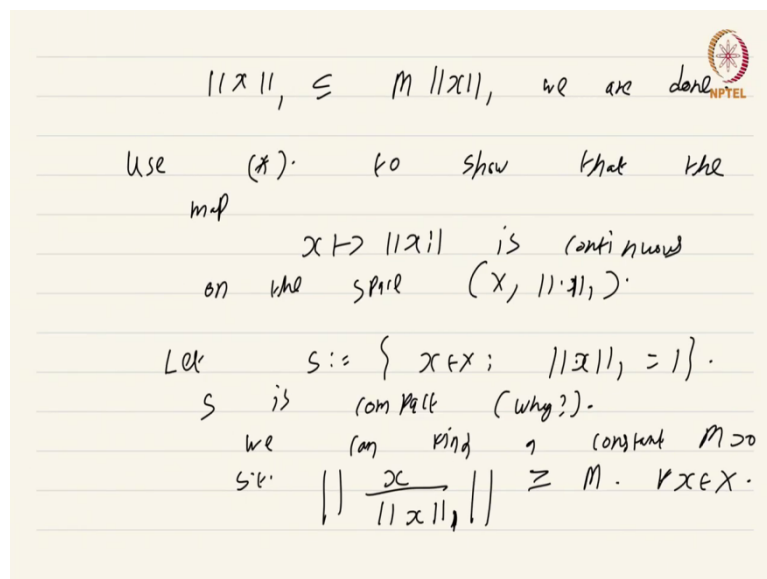 ||x||₁ ≤ M ||x||, we are done.
NPTEL
Use (*). to show that the
map
x ↦ ||x|| is continuous
on the space (X, ||·||₁).
Let S := { x ∈ X ; ||x||₁ = 1 }.
S is compact (why?).
we can find a constant M > 0
s.t. || x / ||x||₁ || ≥ M. ∀ x ∈ X.